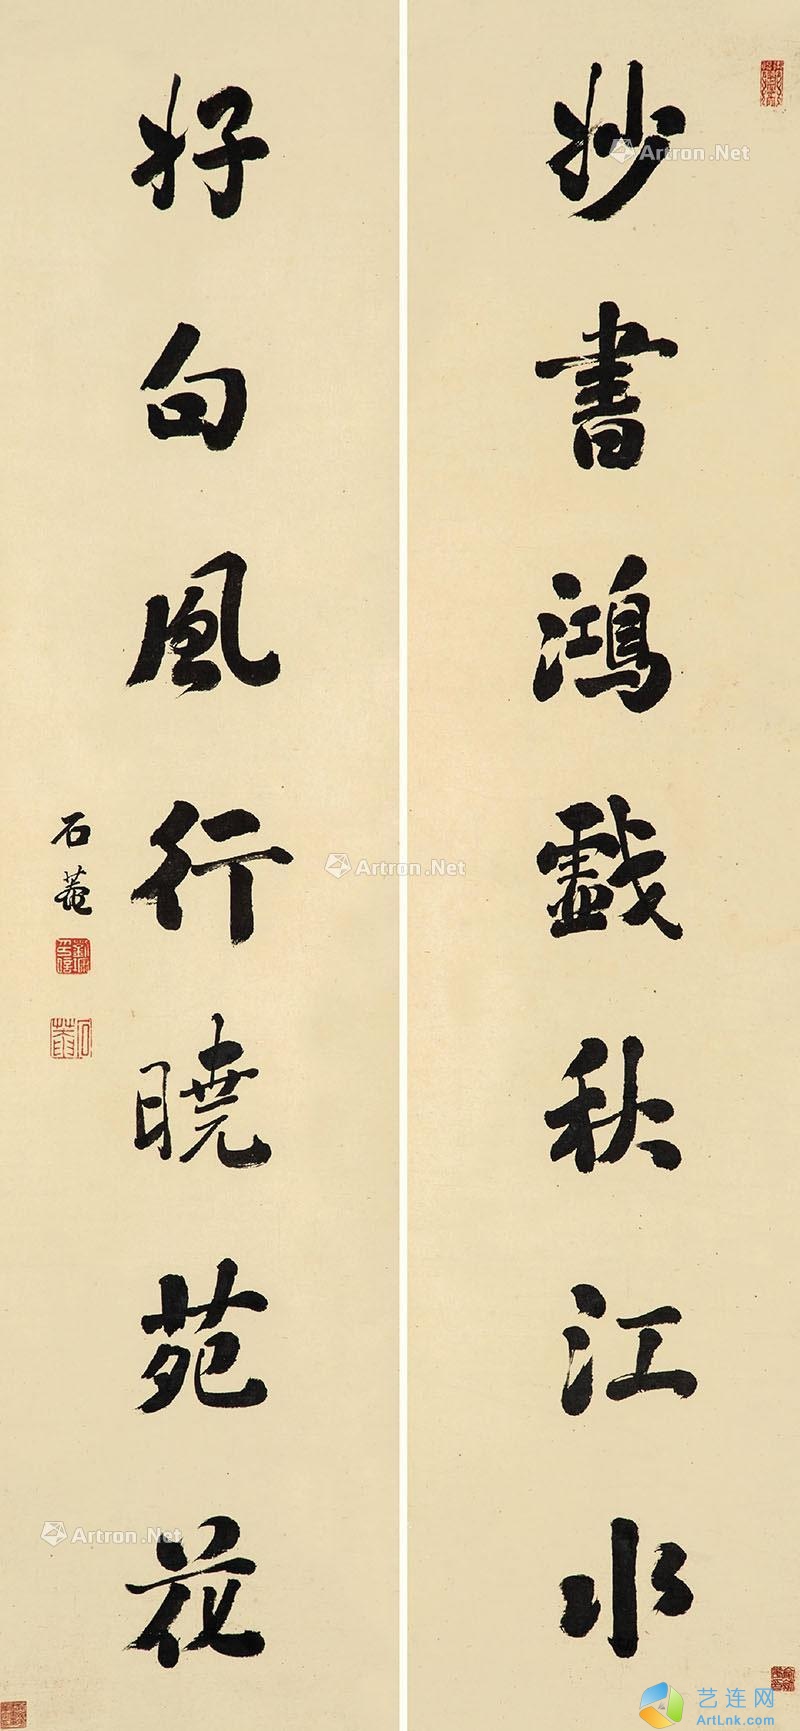 妙書鴻戲秋江水
好句風行曉苑花
石菴
劉墉印信
石菴
Artron.Net
Artron.Net
Artron.Net
艺连网
ArtLnk.com